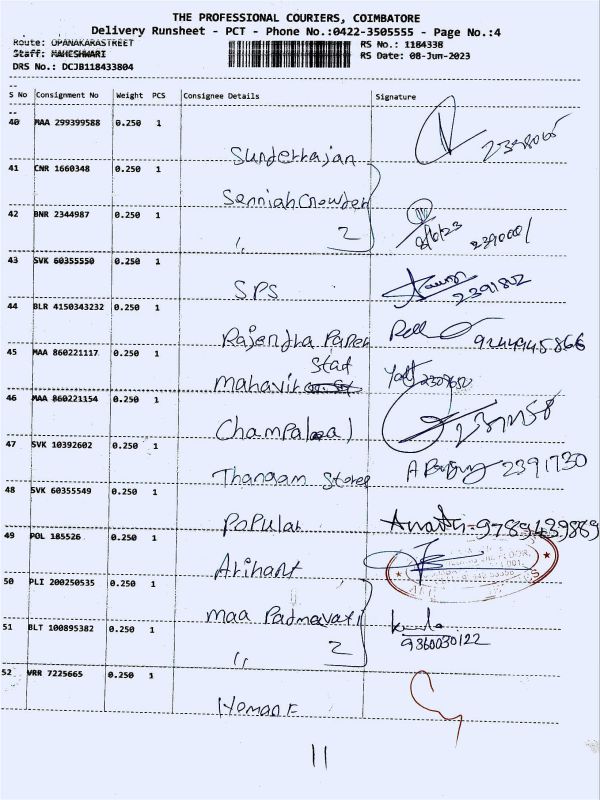 THE PROFESSIONAL COURIERS, COIMBATORE
Delivery Runsheet - PCT - Phone No.:0422-3505555 - Page No.:4
Route: OPANAKARASTREET RS No.: 1184338
Staff: MAHESHWARI RS Date: 08-Jun-2023
DRS No.: DCJB118433804
S No Consignment No Weight PCS Consignee Details Signature
40 MAA 299399588 0.250 1
Sunderrajan
41 CNR 1660348 0.250 1
Senniah Chowder
42 BNR 2344987 0.250 1
" 2 8/6/23
43 SVK 60355550 0.250 1
SPS 2391802
44 BLR 4150343232 0.250 1
Rajendra Paper 9244945866
45 MAA 860221117 0.250 1
Mahavir
46 MAA 860221154 0.250 1
Champalal
47 SVK 10392602 0.250 1
Thangam Stores 2391730
48 SVK 60355549 0.250 1
Popular 9789439889
49 POL 185526 0.250 1
Arihant
50 PLI 200250535 0.250 1
Maa Padmavati
51 BLT 100895382 0.250 1
" 2 9360030122
52 VRR 7225665 0.250 1
11